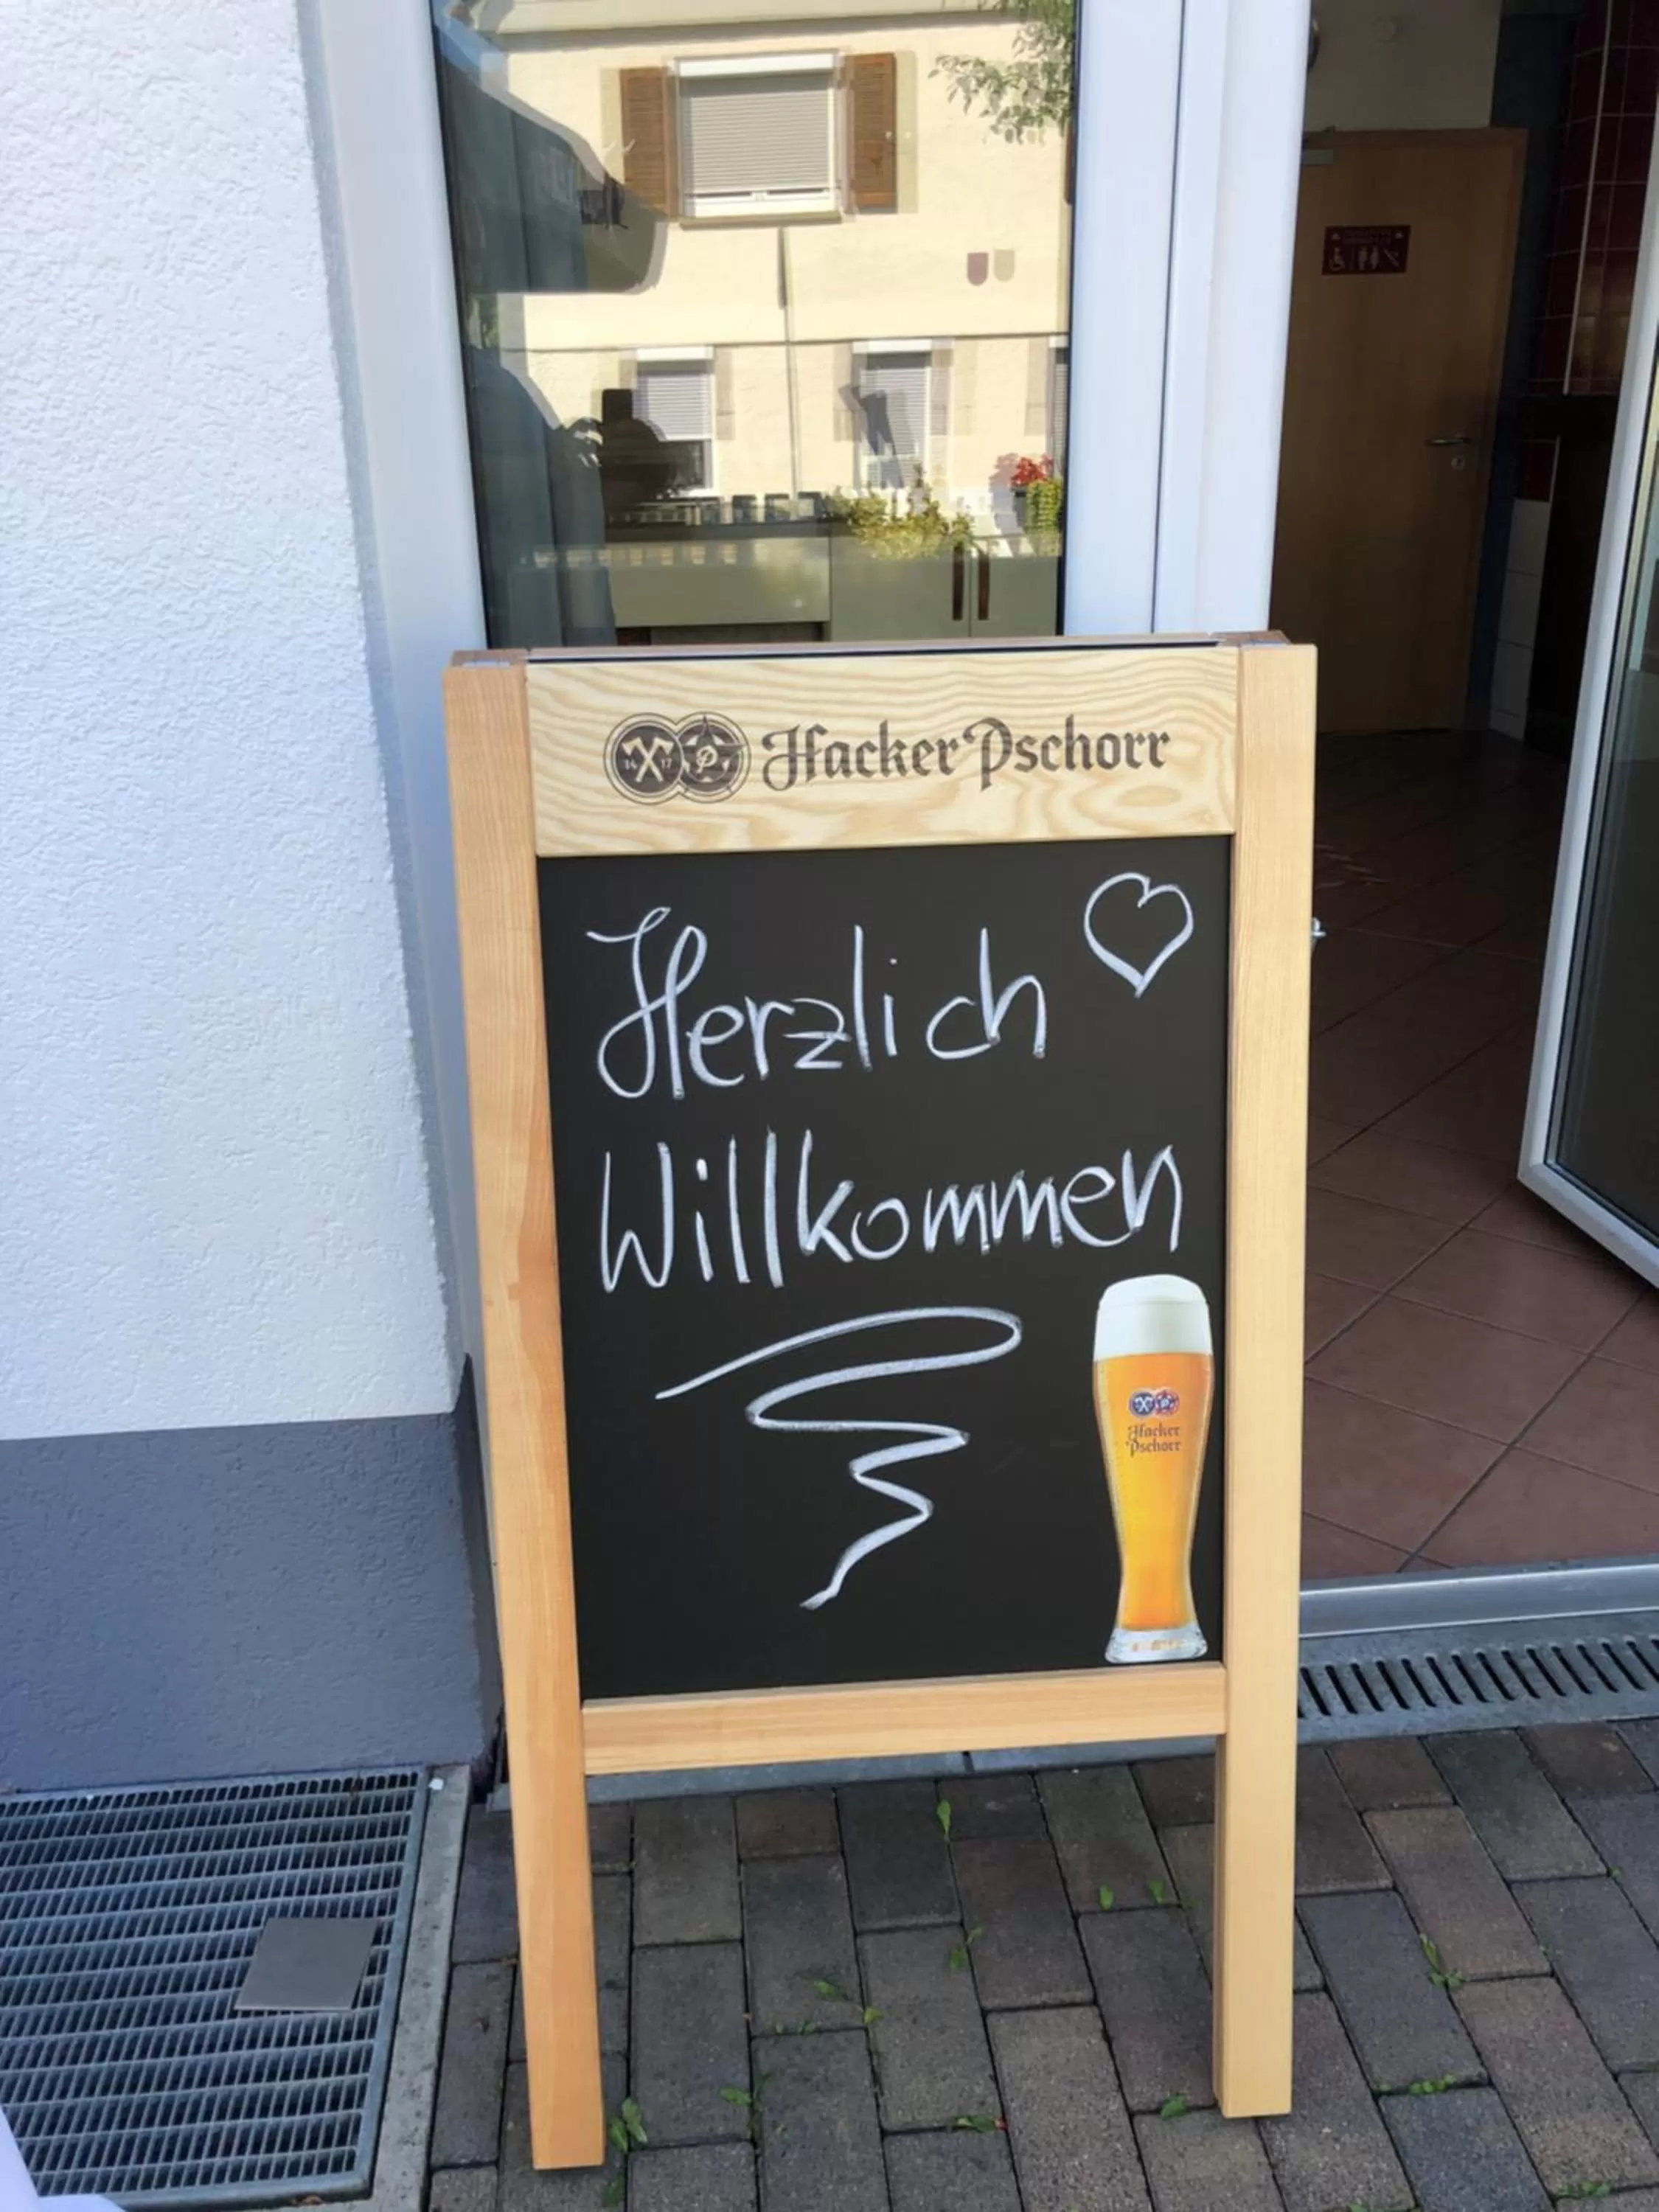 14 17 P
Hacker Pschorr
Herzlich
Willkommen
Hacker
Pschorr